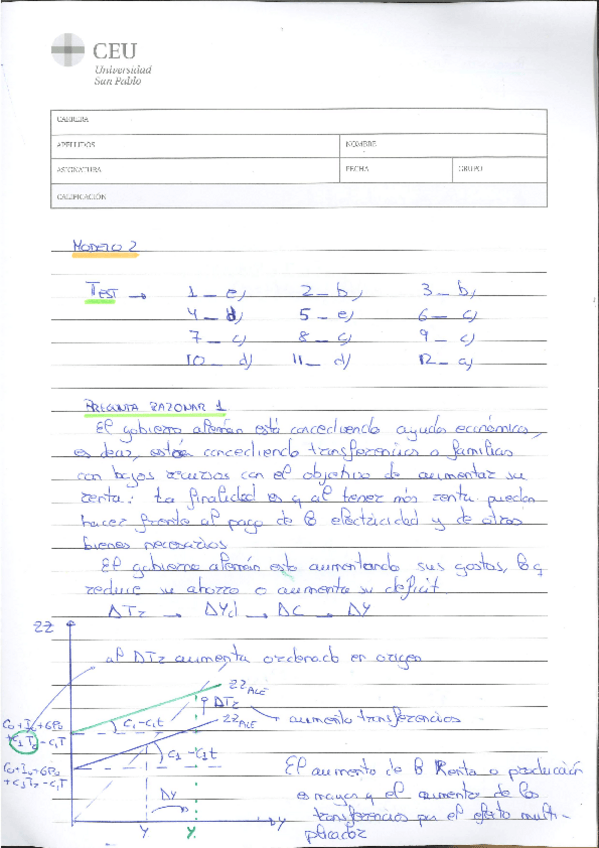 CEU
Universidad
San Pablo
CARRERA
APELLIDOS NOMBRE
ASIGNATURA FECHA GRUPO
CALIFICACIÓN
MODELO 2
TEST → 1 _ e) 2 _ b) 3 _ b)
4 _ d) 5 _ e) 6 _ c)
7 _ c) 8 _ c) 9 _ c)
10 _ d) 11 _ d) 12 _ a)
PREGUNTA RAZONAR 1
El gobierno alemán está concediendo ayudas económicas,
es decir, están concediendo transferencias a familias
con bajos recursos con el objetivo de aumentar su
renta. La finalidad es q al tener más renta puedan
hacer frente al pago de la electricidad y de otros
bienes necesarios
El gobierno alemán está aumentando sus gastos, lo q
reduce su ahorro o aumenta su déficit.
ΔTz → ΔYd → ΔC → ΔY
ZZ
al ΔTz aumenta ordenada en origen
ZZ ALE
ΔTz
C0 + I0 + GP0
+ C1 T0 - C1T
C1 - C1t
ZZ ALE → aumento transferencias
C1 - C1t
C0 + I0 + GP0
+ C1Tz - C1T
El aumento de la Renta o producción
es mayor q el aumento de las
transferencias por el efecto multi-
plicador
ΔY
Y Y Y